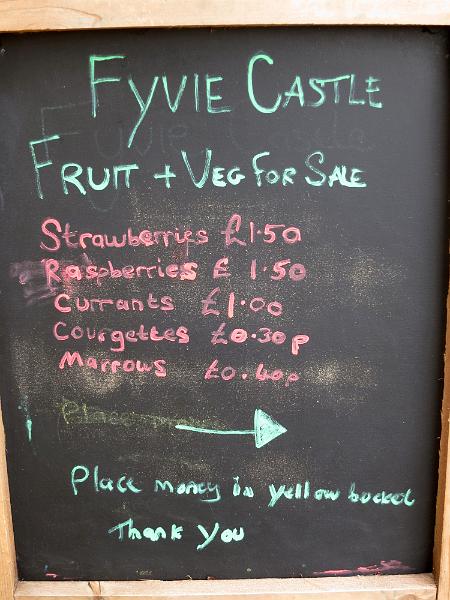 FYVIE CASTLE
FRUIT + VEG FOR SALE
Strawberries £1.50
Raspberries £ 1.50
Currants £1.00
Courgettes £0.30p
Marrows £0.40p
Place money in yellow bucket
Thank you